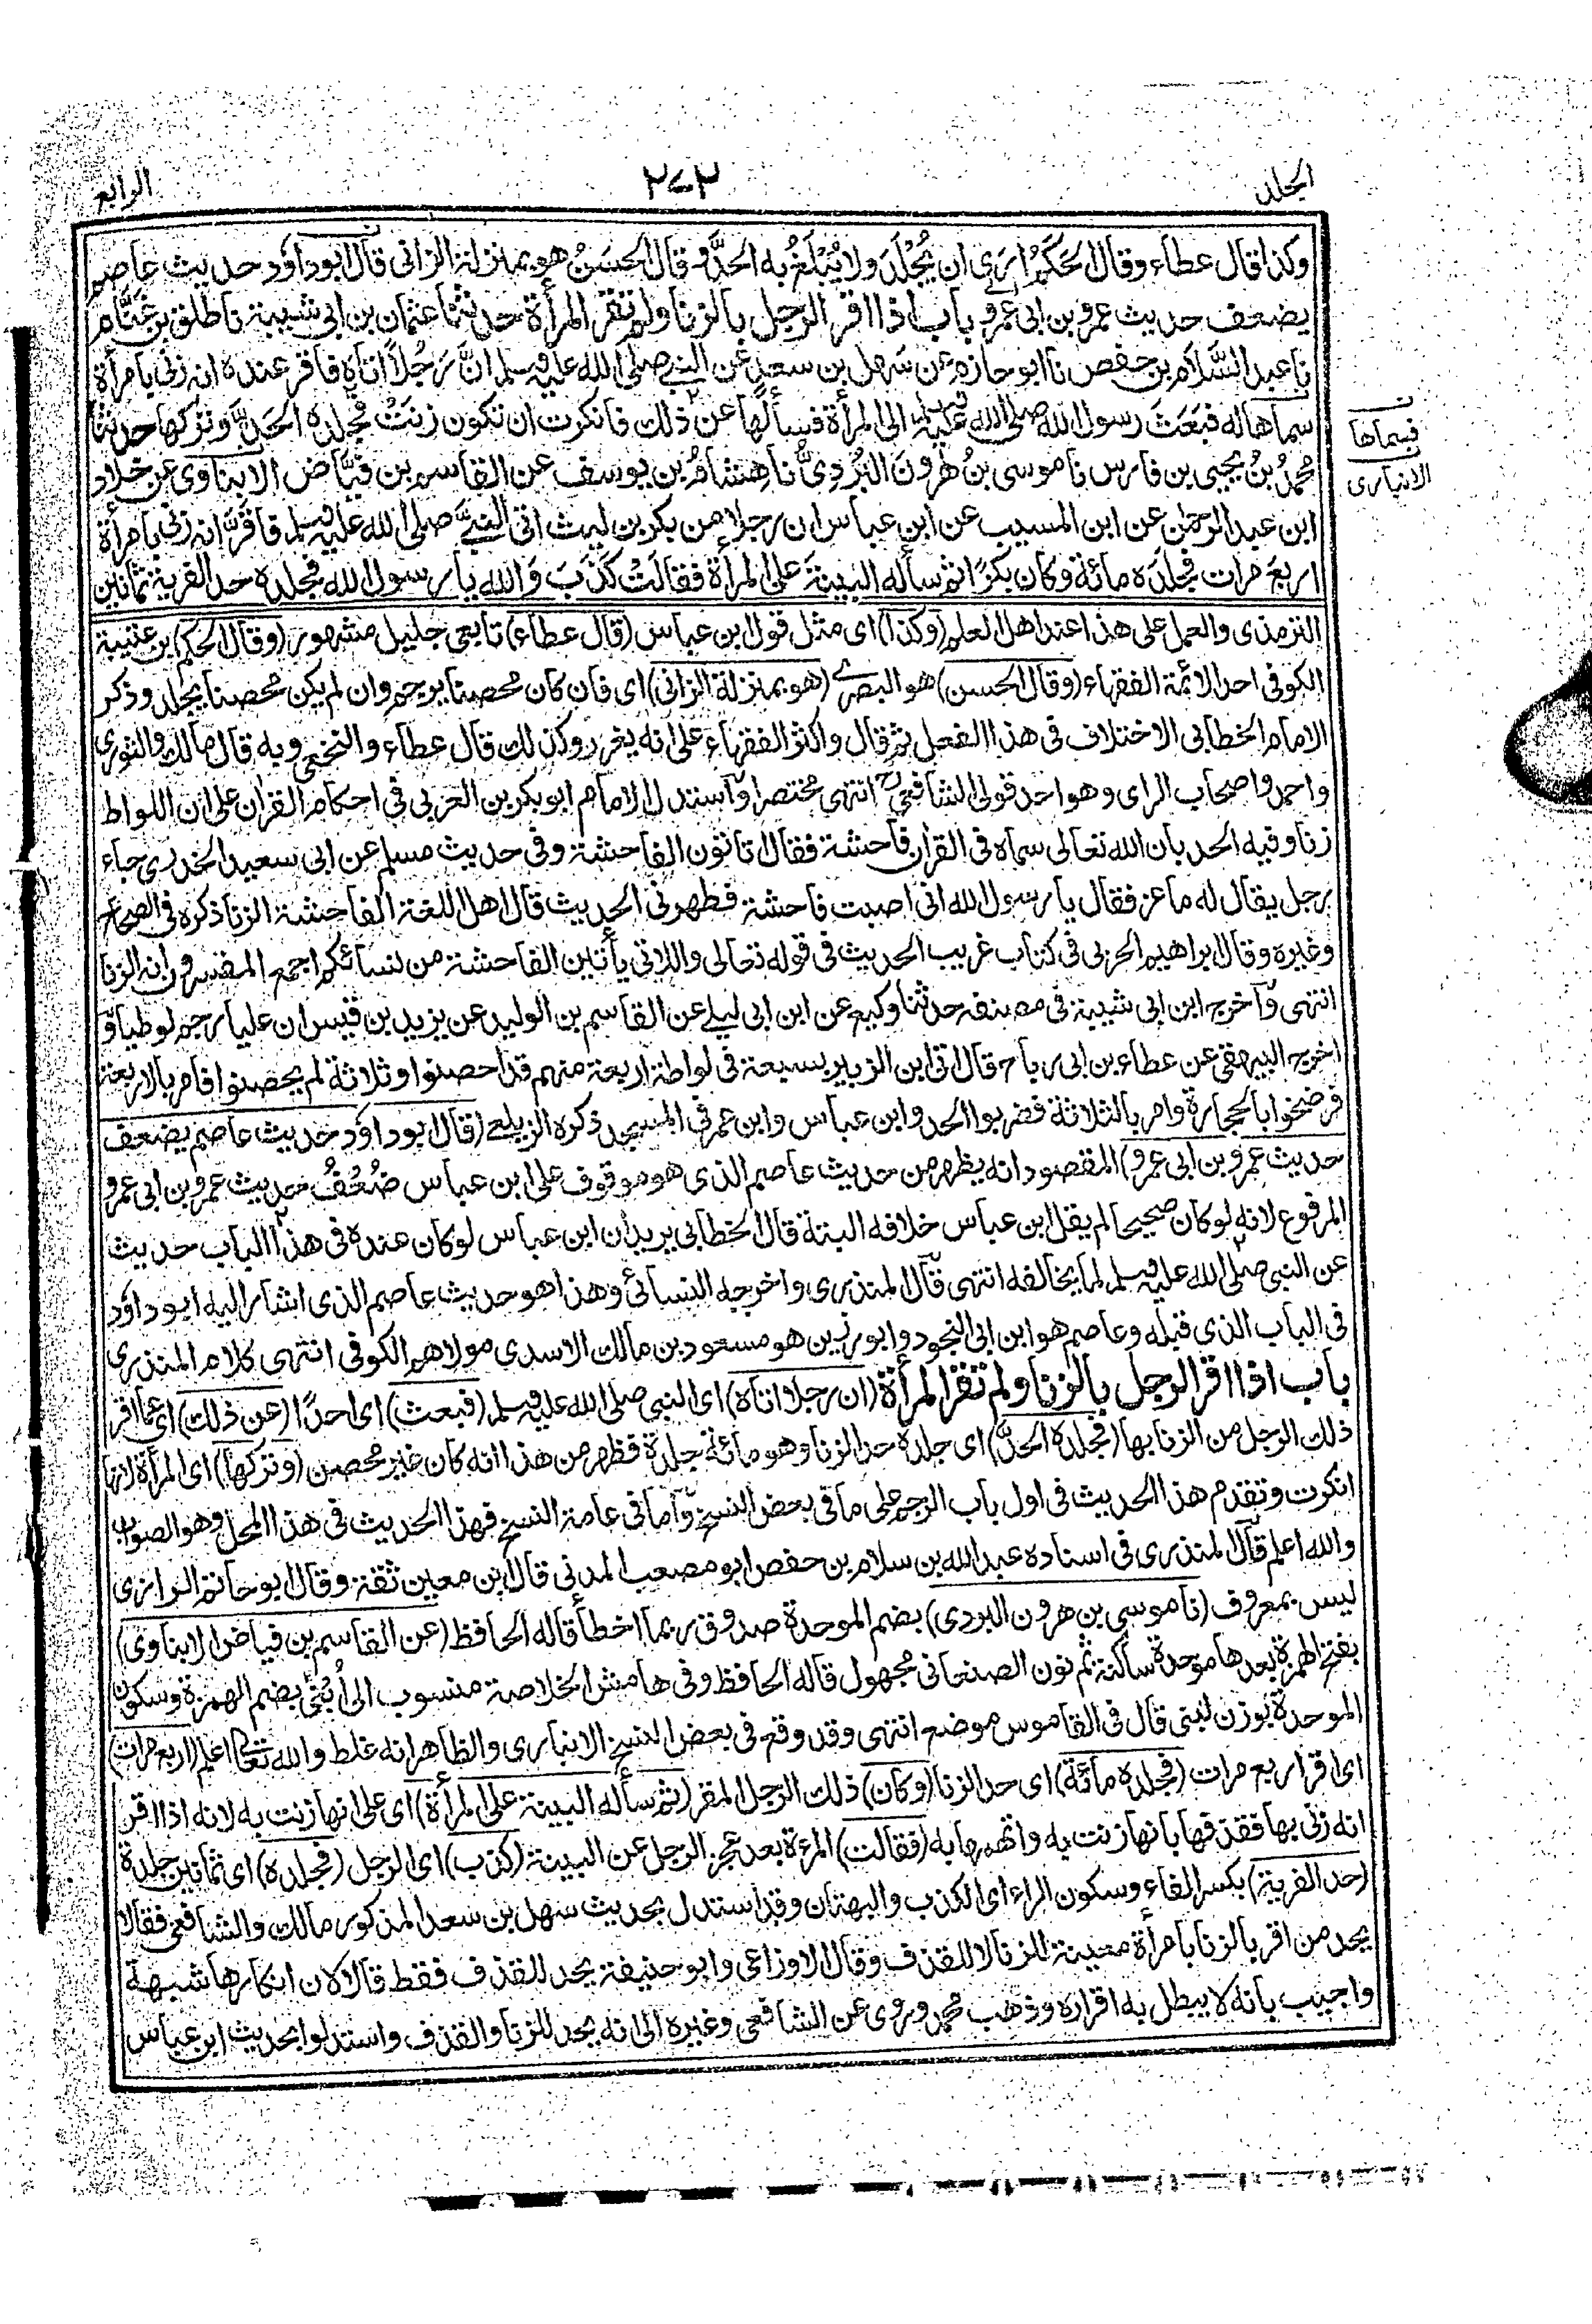 الجلد
٢٧٣
الرابع
وكذا قال عطاء وقال الحَكَمُ ارى ان يُجْلَدَ ولا يُبْلَغُ به الحدَّ وقال الحسَنُ هو بمنزلة الزانى قال ابوداؤد حديث عاصم
يضعف حديث عمرو بن ابى عمرو باب اذا اقر الرجل بالزنا ولم تقر المرأة حدثنا عثمان بن ابى شيبة نا طلق بن غَنَّام
نا عبد السَّلام بن حفص نا ابو حازم عن سَهل بن سعد عن النبى صلى الله عليه وسلم انَّ رَجُلاً اتاه فاقر عنده انه زنى بامرأة
سماها له فبَعَثَ رسول الله صلى الله عليه وسلم الى المرأة فسألها عن ذلك فانكرت ان تكون زنتْ فجلده الحدَّ وتركها حدثنا
محمدُ بنُ يحيى بن فارس نا موسى بنُ هٰرونَ البُرْدِىُّ نا هِشامُ بن يوسف عن القاسم بن فيَّاض الابناوى عن خلاد
ابن عبد الرحمٰن عن ابن المسيب عن ابن عباس ان رجلا من بكر بن ليث اتى النبىَّ صلى الله عليه وسلم فاقرَّ انه زنى بامرأة
اربعَ مرات فجلدَه مائة وكان بكرًا ثم سأله البينةَ على المرأة فقالَتْ كَذَبَ وَاللهِ يا رسول الله فجلده حد الفرية ثمانين
فسماها
الانبارى
الترمذى والعمل على هذا عند اهل العلم (وكذا) اى مثل قول ابن عباس (قال عطاء) تابعى جليل مشهور (وقال الحكم) بن عتيبة
الكوفى احد الائمة الفقهاء (وقال الحسن) هو البصرى (هو بمنزلة الزانى) اى فان كان محصنا يرجم وان لم يكن محصنا يجلد وذكر
الامام الخطابى الاختلاف فى هذا الفعل ثم قال واكثر الفقهاء على انه يعزر وكذلك قال عطاء والنخعى وبه قال مالك والثورى
واحمد واصحاب الراى وهو احد قولى الشافعى انتهى مختصرا واستدل الامام ابو بكر بن العربى فى احكام القران على ان اللواط
زنا وفيه الحد بان الله تعالى سماه فى القران فاحشة فقال اتاتون الفاحشة وفى حديث مسلم عن ابى سعيد الخدرى جاء
رجل يقال له ماعز فقال يا رسول الله انى اصبت فاحشة فظهر فى الحديث قال اهل اللغة الفاحشة الزنا ذكره فى الصحاح
وغيره وقال ابراهيم الحربى فى كتاب غريب الحديث فى قوله تعالى واللاتى يأتين الفاحشة من نسائكم اجمع المفسرون انه الزنا
انتهى واخرجه ابن ابى شيبة فى مصنفه حدثنا وكيع عن ابن ابى ليلى عن القاسم بن الوليد عن يزيد بن قيس ان عليا رجم لوطيا و
اخرجه البيهقى عن عطاء بن ابى رباح قال اتى ابن الزبير بسبعة فى لواطة اربعة منهم قد احصنوا وثلاثة لم يحصنوا فامر بالاربعة
فرضخوا بالحجارة وامر بالثلاثة فضربوا الحد وابن عباس وابن عمر فى المسجد ذكره الزيلعى (قال ابو داؤد حديث عاصم يضعف
حديث عمرو بن ابى عمرو) المقصود انه يظهر من حديث عاصم الذى هو موقوف على ابن عباس ضُعْفُ حديث عمرو بن ابى عمرو
المرفوع لانه لو كان صحيحا لم يقل ابن عباس خلافه البتة قال الخطابى يريد ان ابن عباس لو كان عنده فى هذا الباب حديث
عن النبى صلى الله عليه وسلم لم يخالفه انتهى قال المنذرى واخرجه النسائى وهذا هو حديث عاصم الذى اشار اليه ابو داؤد
فى الباب الذى قبله وعاصم هو ابن ابى النجود وابو رزين هو مسعود بن مالك الاسدى مولاهم الكوفى انتهى كلام المنذرى
باب اذا اقر الرجل بالزنا ولم تقر المرأة (ان رجلا اتاه) اى النبى صلى الله عليه وسلم (فبعث) اى احدًا (عن ذلك) اى عما اقر
ذلك الرجل من الزنا بها (فجلده الحدّ) اى جلده حد الزنا وهو مائة جلدة فظهر من هذا انه كان غير محصن (وتركها) اى المرأة لانها
انكرت وتقدم هذا الحديث فى اول باب الرجم على ما فى بعض النسخ واما فى عامة النسخ فهذا الحديث فى هذا المحل وهو الصواب
والله اعلم قال المنذرى فى اسناده عبد الله بن سلام بن حفص ابو مصعب المدنى قال ابن معين ثقة وقال ابو حاتم الرازى
ليس بمعروف (نا موسى بن هرون البردى) بضم الموحدة صدوق ربما اخطأ قاله الحافظ (عن القاسم بن فياض الابناوى)
بفتح الهمزة بعدها موحدة ساكنة ثم نون الصنعانى مجهول قاله الحافظ وفى هامش الخلاصة منسوب الى اُبْنٰى بضم الهمزة وسكون
الموحدة بوزن لبنى قال فى القاموس موضع انتهى وقد وقع فى بعض النسخ الانبارى والظاهر انه غلط والله تعالى اعلم (اربع مرات)
اى اقر اربع مرات (فجلده مائة) اى حد الزنا (وكان) ذلك الرجل المقر (ثم سأله البينة على المرأة) اى على انها زنت به لانه اذا اقر
انه زنى بها فقد قذفها بانها زنت به واتهمها به (فقالت) المرءة بعد عجز الرجل عن البينة (كذب) اى الرجل (فجلده) اى ثمانين جلدة
(حد الفرية) بكسر الفاء وسكون الراء اى الكذب والبهتان وقد استدل بحديث سهل بن سعد المذكور مالك والشافعى فقالا
يحد من اقر بالزنا بامرأة معينة للزنا لا للقذف وقال الاوزاعى وابو حنيفة يحد للقذف فقط قالا لان انكارها شبهة
واجيب بانه لا يبطل به اقراره وذهب محمد وروى عن الشافعى وغيره الى انه يحد للزنا والقذف واستدلوا بحديث ابن عباس